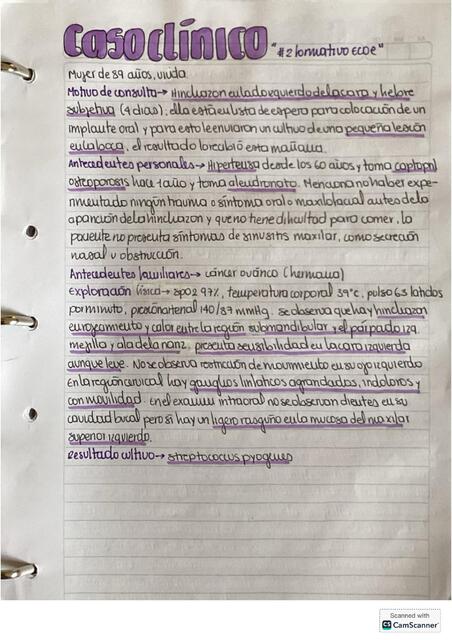 Caso clínico "#2 formativo ECOE"
Mujer de 89 años, viuda
Motivo de consulta → Hinchazon en lado izquierdo de la cara y fiebre
subjetiva (4 dias), ella esta en lista de espera para colocación de un
implante oral y para esto le enviaron un cultivo de una pequeña lesión
en la boca, el resultado lo recibió esta mañana.
Antecedentes personales → Hipertensa desde los 60 años y toma captopril
osteoporosis hace 1 año y toma alendronato. Menciona no haber expe-
rimentado ningún trauma o síntoma oral o maxilofacial antes de la
aparición de la hinchazon y que no tiene dificultad para comer. La
paciente no presenta síntomas de sinusitis maxilar, como secreción
nasal u obstrucción.
Antecedentes familiares → cáncer ovárico (hermana)
Exploración física → SpO2 97%, temperatura corporal 39°C, pulso 63 latidos
por minuto, presión arterial 140/87 mmHg. se observa que hay hinchazon
enrojecimiento y calor entre la región submandibular y el párpado izq.
mejilla y ala de la nariz, presenta sensibilidad en la cara izquierda
aunque leve. No se observa restricción de movimiento en su ojo izquierdo
En la región cervical hay ganglios linfáticos agrandados, indoloros y
con movilidad. En el examen intraoral no se observan dientes en su
cavidad bucal pero si hay un ligero rasguño en la mucosa del maxilar
superior izquierdo.
Resultado cultivo → streptococcus pyogenes
Scanned with
CS CamScanner